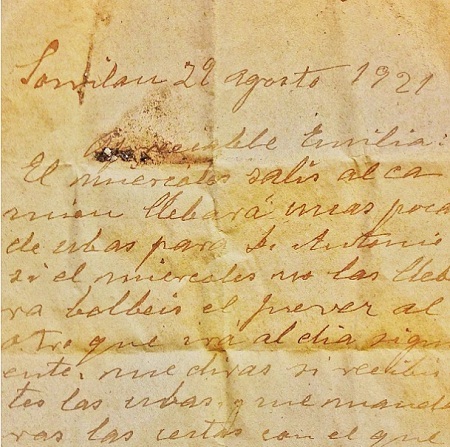 29 agosto 1921
Apreciable Emilia:
El miercoles salis al ca
mion llebará unas poca
de ubas para D. Antonio
si el miercoles no las lleb
ra bolbeis el juever al
otro que irá al dia sigui
ente. me diras si recibis
tes las ubas y me manda
ras las cestas con el que